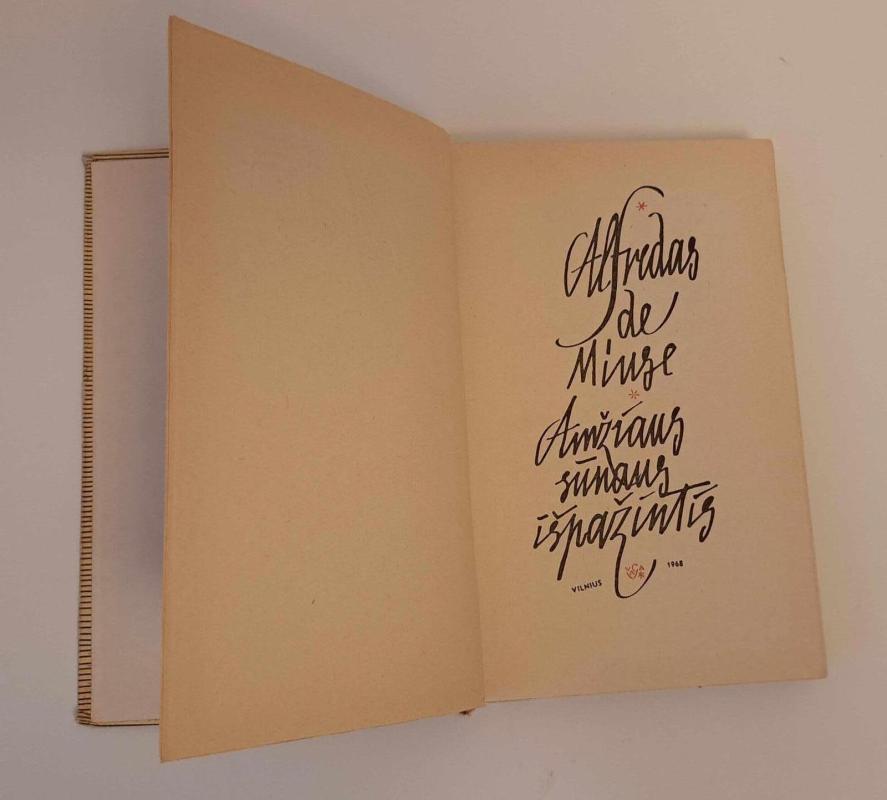 Alfredas
de
Miuse
Amžiaus
sūnaus
išpažintis
VILNIUS 1968